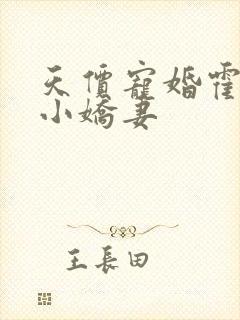 天價寵婚霍
小嬌妻
王長田